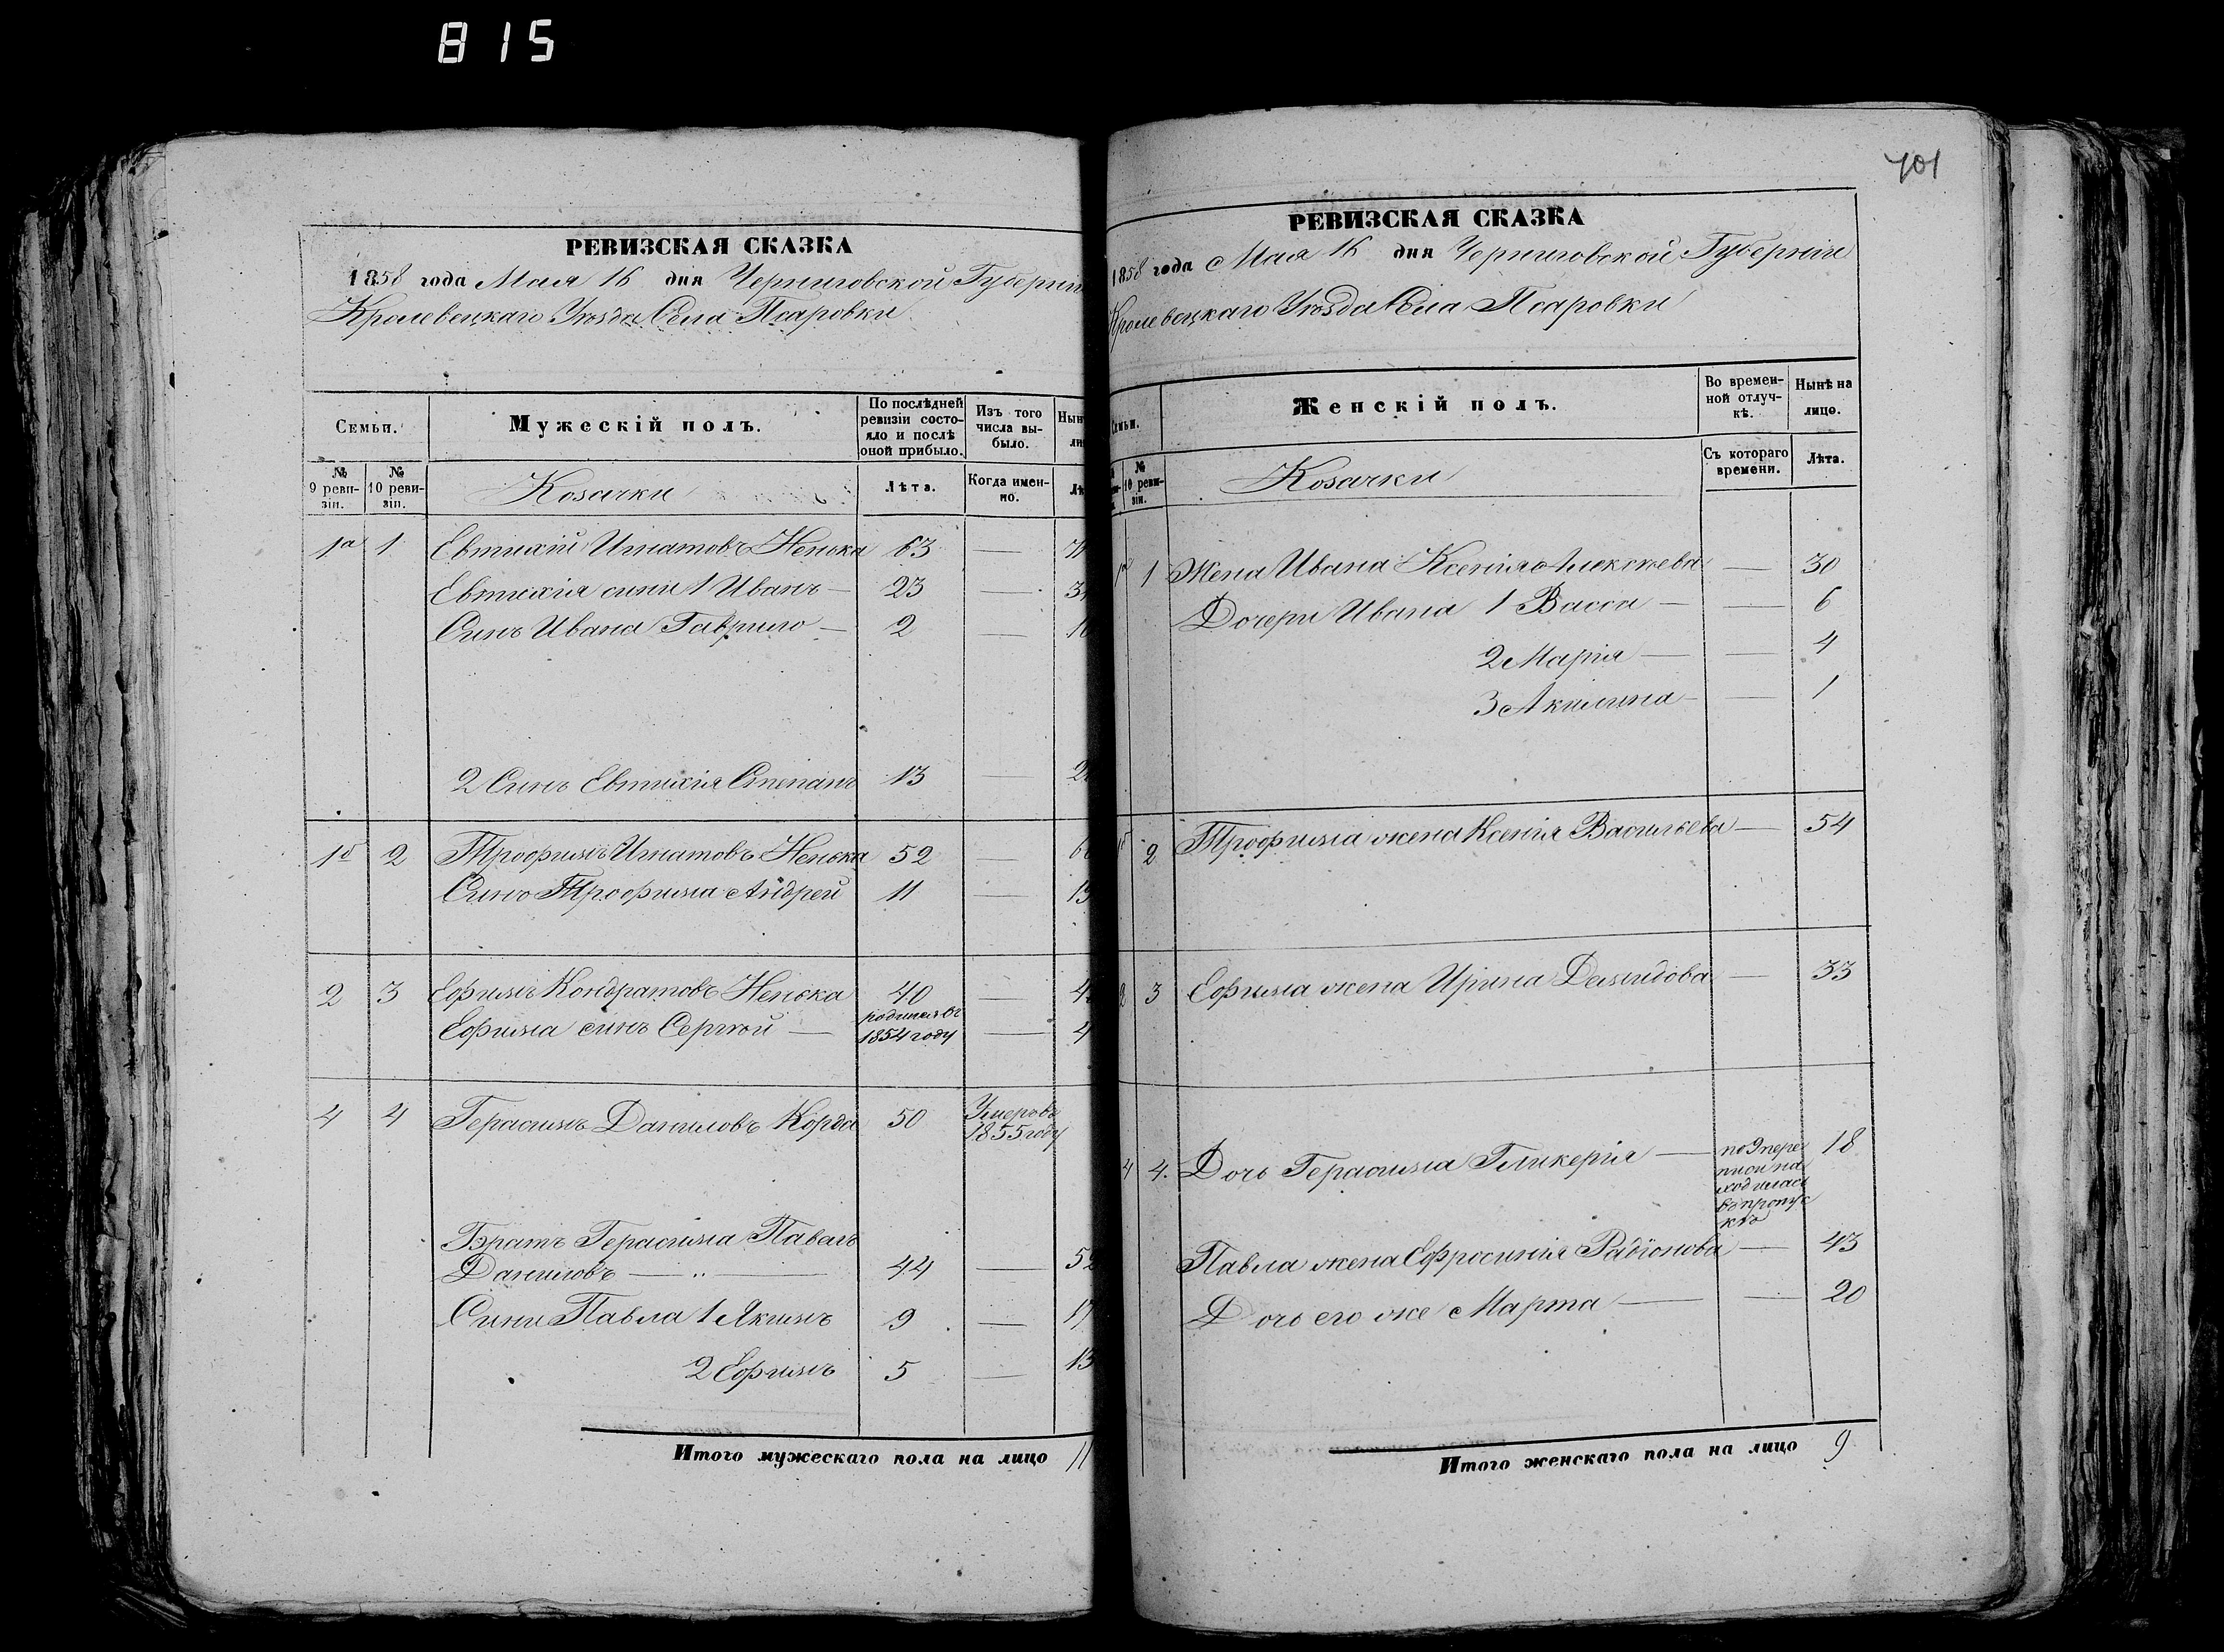 815
РЕВИЗСКАЯ СКАЗКА
1858 года Мая 16 дня Черниговской Губерніи
Кролевецкаго Уѣзда Села Псаровки
Семьи.
Мужескій полъ.
По послѣдней ревизіи состояло и послѣ оной прибыло.
Изъ того числа выбыло.
№ 9 ревизіи.
№ 10 ревизіи.
Козачки
Лѣта.
Когда именно.
1а 1 Евтихій Игнатовъ Ненька 63 —
Евтихія сини 1 Иванъ — 23 —
Синъ Ивана Гаврило — 2 —
2 Синъ Евтихія Степанъ 13 —
1б 2 Трофимъ Игнатовъ Ненька 52 —
Синъ Трофима Андрей 11 — 19
2 3 Ефимъ Кондратовъ Ненька 40 —
Ефима синъ Сергѣй — родился въ 1854 году — 4
4 4 Герасимъ Даниловъ Корда 50 Умеръ въ 1855 году
Братъ Герасима Павелъ
Даниловъ — „ — 44 — 52
Сини Павла 1 Якимъ 9 — 17
2 Ефимъ 5 — 13
Итого мужескаго пола на лицо 11
701
РЕВИЗСКАЯ СКАЗКА
1858 года Мая 16 дня Черниговской Губерніи
Кролевецкаго Уѣзда Села Псаровки
Семьи.
Женскій полъ.
Во временной отлучкѣ.
Нынѣ на лицо.
№ 10 ревизіи.
Козачки
Съ котораго времени.
Лѣта.
1а 1 Жена Ивана Ксенія Алексѣева — 30
Дочери Ивана 1 Васса — — 6
2 Марія — — 4
3 Акилина — — 1
1б 2 Трофима жена Ксенія Васильева — 54
2 3 Ефима жена Ирина Демидова — 33
4 4. Дочь Герасима Гликерія — по 9 переписи находилась въ пропускѣ 18
Павла жена Ефросинія Радіонова — 43
Дочь его же Марта — — 20
Итого женскаго пола на лицо 9